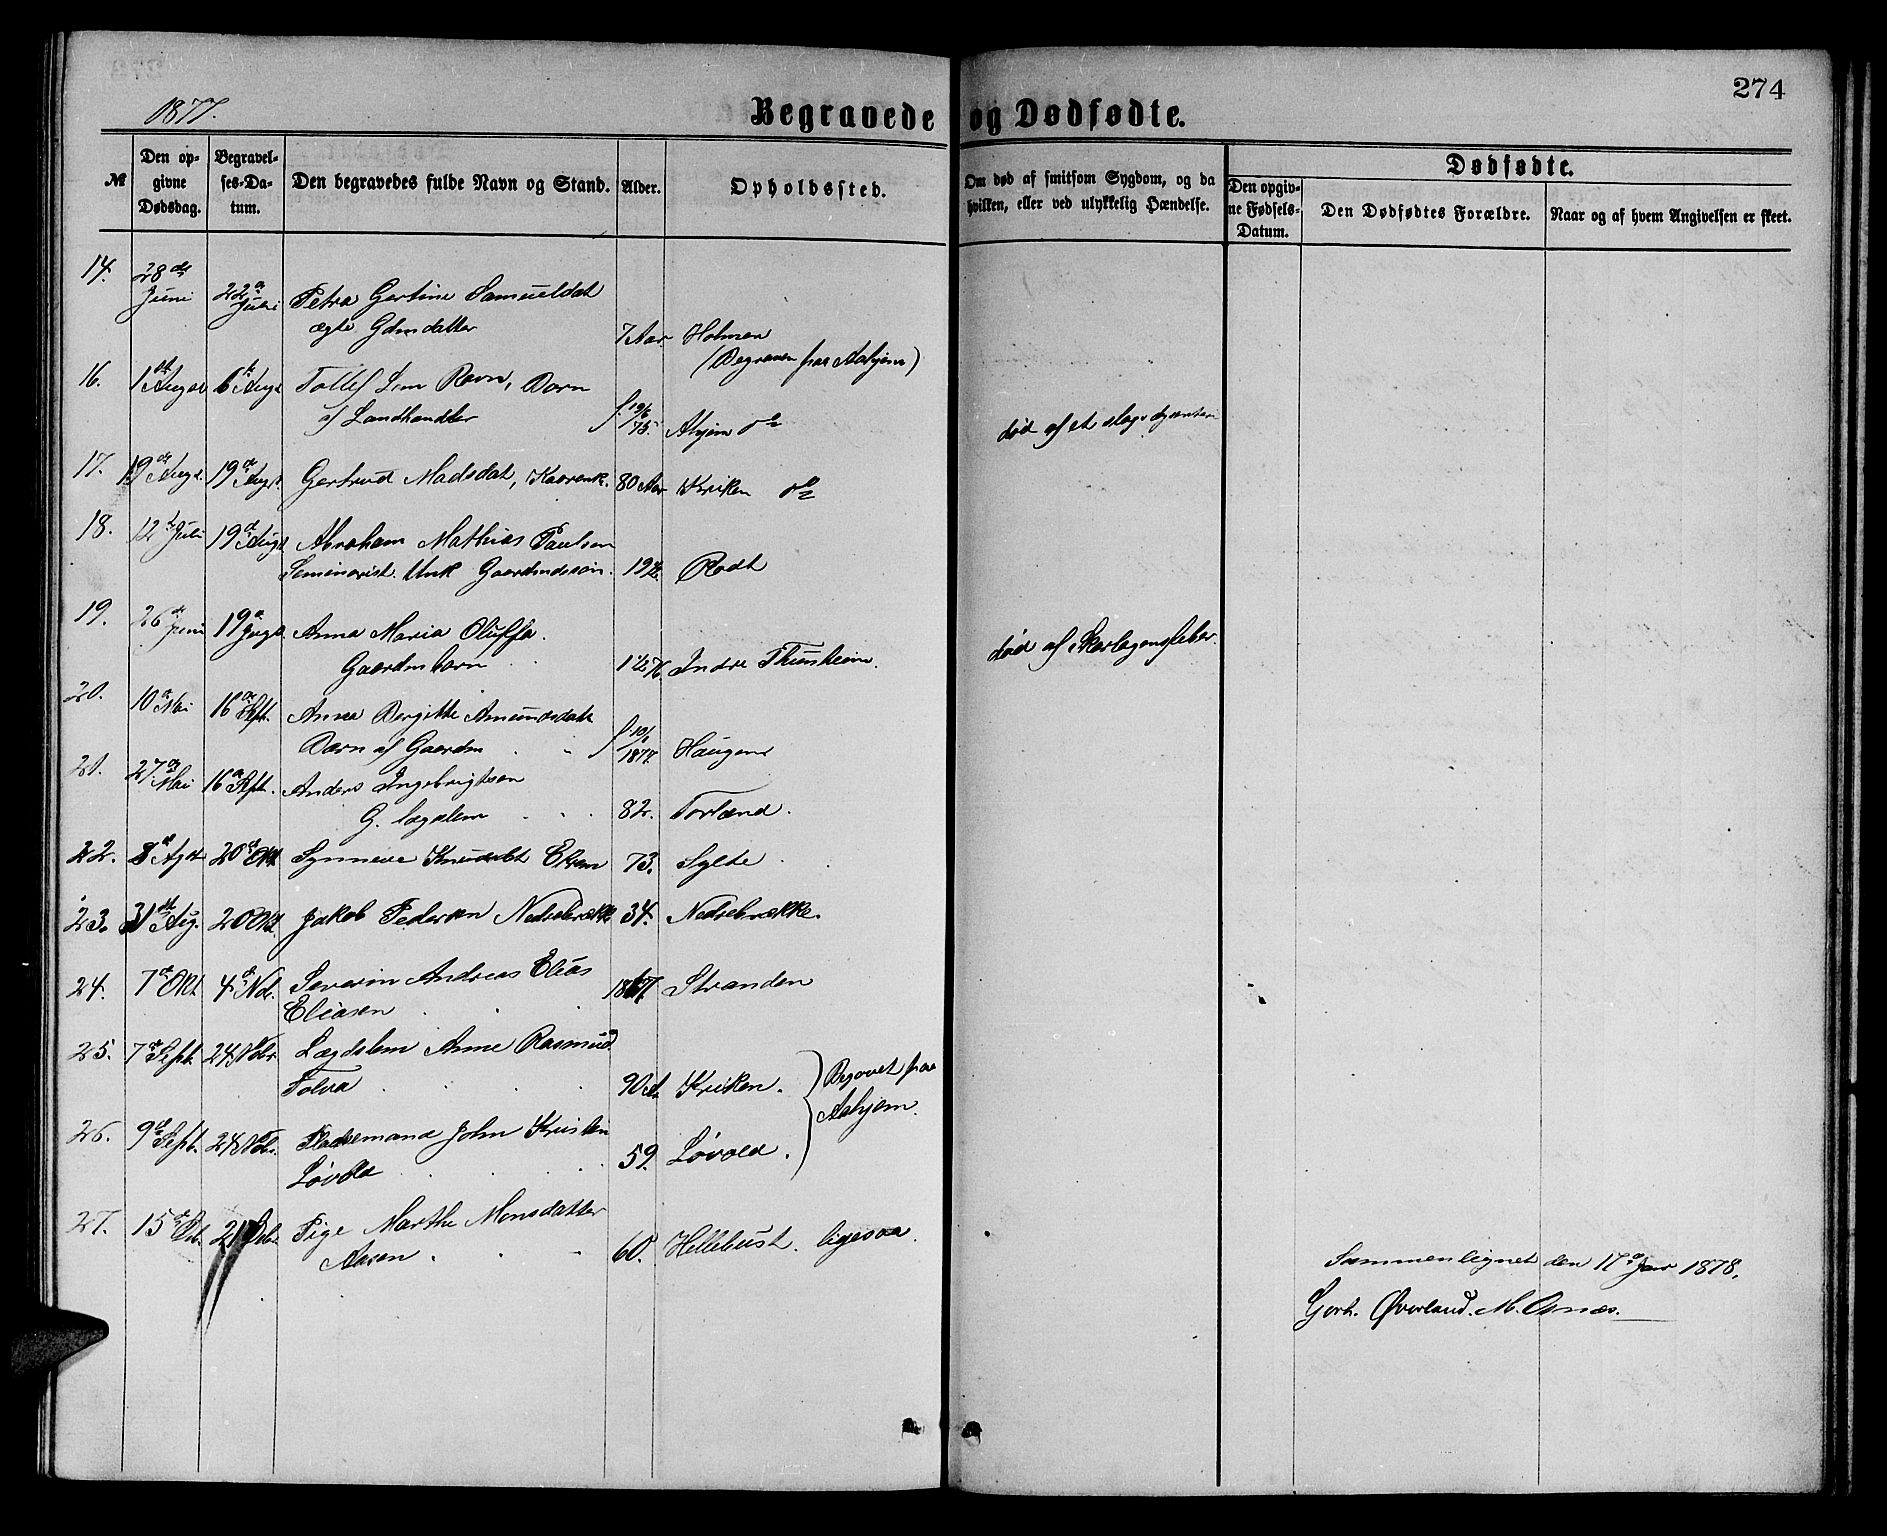 274
1877.
Begravede og Dødfødte.
№
Den opgivne Dødsdag.
Begravelses-Datum.
Den begravedes fulde Navn og Stand.
Alder.
Opholdssted.
Om død af smitsom Sygdom, og da hvilken, eller ved ulykkelig Hændelse.
Dødfødte.
Den opgivne Fødsels-Datum.
Den Dødfødtes Forældre.
Naar og af hvem Angivelsen er skeet.
14. 28de Juni 22d Juli Petra Gertine Samueldat
ægte Gdmdatter 7 Aar Holmen
(Begraven fra Aahjem)
16. 1st Augst 6t Augt Tollef Ravn, Barn
af Landhandler f. 19/6 75. Ahjem do
død af et slags dysenteri
17. 19de Augt. 19de Augt. Gertrud Madsdat, Kaarenk. 80 Aar Kriken do
18. 12te Juli 19de Augt Abraham Mathias Paulsen
Seminarist. Unk Gaardmdssøn. 19 Rødt
19. 26de Juni 19d Augt Anna Maria Oluffa.
Gaardmbarn Indre Thunheim.
død af Skarlagensfeber.
20. 10d Mai 16de Sept. Anna Bergitte Amundsdatt
Barn af Gaardm f 10/1 1877. Haugen
21. 27de Mai 16d Sept. Anders Ingebrigtsen
G. lægdslem 82. Torland.
22. 8d Agst 20de Okt Synneve Knudsdt Ekrem 73. Sylte
23. 31te Aug. 20 Okt. Jakob Pedersen Nedrebrække 34. Nedrebrække.
24. 7d Okt 4d Nov. Severin Andreas Elias
Eliasen 1867. Stranden
25. 7d Sept. 24 Nobr. Lægdslem Anne Rasmusd
Folva 90 Kriken. Begravet fra
Aahjem.
26. 9d Sept. 24 Nobr. Pladsemand John Kristen
Løvold 59. Løvold.
27. 15d 21 Pige Marthe Monsdatter
Aasen 60. Hellebust. ligesaa.
Sammenlignet den 17d Jan 1878.
Gerh. Øverland. M. Osnes.